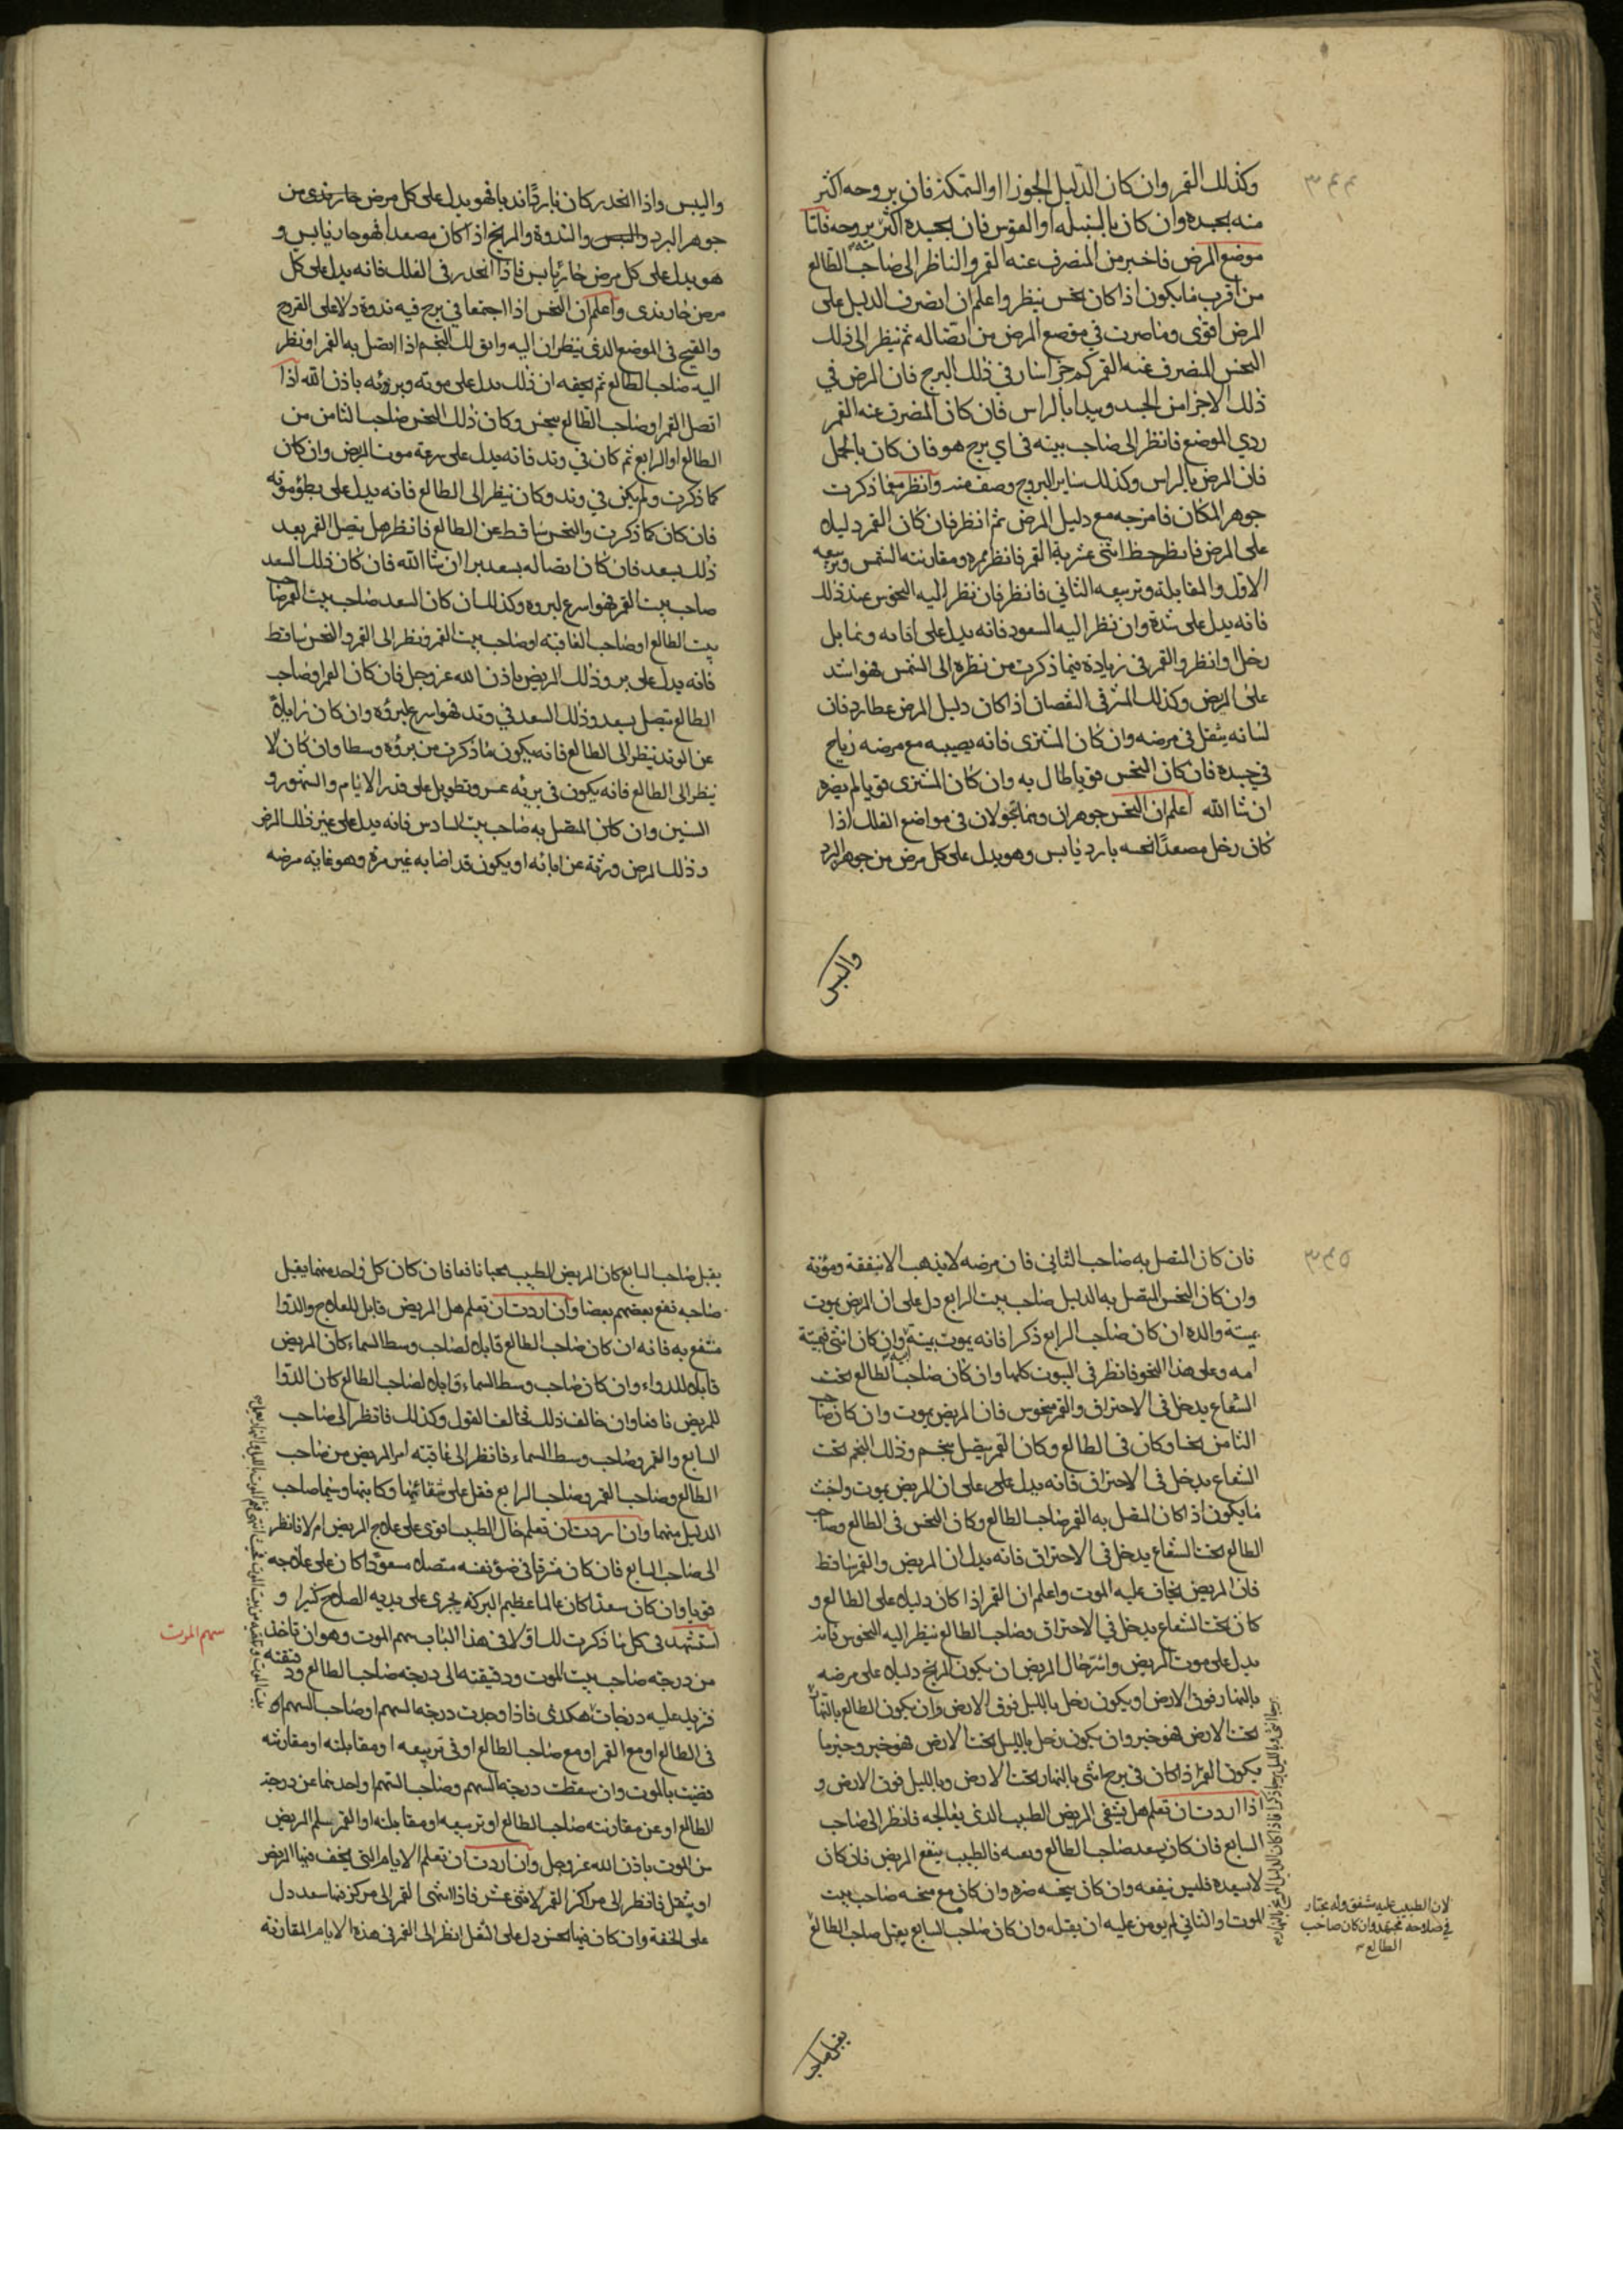 ٣٤٤
وكذلك القمر وان كان الدليل الجوزا او السمكة فان بروحه اكثر
منه بجسده وان كان بالسنبله او القوس فان بجسده اكثر بروحه فاما
موضع المرض فاخبر من المنصرف عنه القمر والناظر الى صاحب الطالع
من اقرب ما يكون اذا كان نحس ينظر واعلم ان انصرف الدليل على
المرض اقوى وما صرت في موضع المرض من اتصاله ثم تنظر الى ذلك
النحس المنصرف عنه القمر كم جزا سار في ذلك البرج فان المرض في
ذلك الاجزا من الجسد ويبدا بالراس فان كان المنصرف عنه القمر
ردي الموضع فانظر الى صاحب بيته في اي برج هو فان كان بالحمل
فان المرض بالراس وكذلك ساير البروج وانظر مع ما ذكرت
جوهر المكان فامزجه مع دليل المرض ثم انظر فان كان القمر دليله
على المرض فانظر حظ اثنى عشرية القمر فانظر ممره ومقارنته الشمس وتربيعه
الاول والمقابلة وتربيعه الثاني فانظر فان نظر اليه النحوس عند ذلك
فانه يدل على شدة وان نظر اليه السعود فانه يدل على
زحل وانظر والقمر في زيادة فيما ذكرت من نظره الى الشمس فهو اشد
على المريض وكذلك المشرق في النقصان اذا كان دليل المرض عطارد فان
لسانه يثقل في مرضه وان كان المشترى فانه يصيبه مع مرضه رياح
في جسده فان كان النحس قويا طال به وان كان المشترى قويا لم يضره
ان شا الله اعلم ان النحس جوهران وهما يتحولان في مواضع الفلك اذا
كان زحل مصعدا نحسه بارد يابس وهو يدل على كل مرض من جوهر البرد
واليبس
واليبس واذا انحدر كان باردا نديا فهو يدل على كل مرض حار ندى من
جوهر البرد واليبس والندوة والمريخ اذا كان مصعدا فهو حار يابس و
هو يدل على كل مرض حار يابس فاذا انحدر في الفلك فانه يدل على كل
مرض حار ندى واعلم ان النحس اذا اجتمعا في برج فيه ندوة دلا على القروح
والقيح في الموضع الذى ينظران اليه واى لك النجم اذا اتصل به القمر او نظر
اليه صاحب الطالع ثم يخفه ان ذلك يدل على موته وبرؤئه باذن الله اذا
اتصل القمر او صاحب الطالع بنحس وكان ذلك النحس صاحب الثامن من
الطالع او الرابع ثم كان في وتد فانه يدل على سرعة موت المريض وان كان
كما ذكرت ولم يكن في وتد وكان ينظر الى الطالع فانه يدل على بطؤ موته
فان كان كما ذكرت والنحس ساقط عن الطالع فانظر هل يتصل القمر بعد
ذلك بسعد فان كان اتصاله بسعد برا ان شا الله فان كان ذلك السعد
صاحب بيت القمر فهو اسرع لبروه وكذلك ان كان السعد صاحب بيت القمر صاحب
بيت الطالع او صاحب العاقبة او صاحب بيت القمر ونظر الى القمر والنحس ساقط
فانه يدل على برو وذلك المريض باذن الله عز وجل فان كان القمر او صاحب
الطالع يتصل بسعد وذلك السعد في وتد فهو اسرع لبرؤه وان كان زايلا
عن الوتد ينظر الى الطالع فانه يكون ما ذكرت من برؤه وسطا وان كان لا
ينظر الى الطالع فانه يكون في برئه عسر وتطويل على قدر الايام والشهور و
السنين وان كان المتصل به صاحب بيت السادس فانه يدل على غير ذلك المرض
وذلك المرض ورثة عن ابائه او يكون قد اصابه غير مرة وهو غاية مرضه
٣٤٥
فان كان المتصل به صاحب الثاني فان مرضه لا يذهب الا بنفقة ومؤنة
وان كان النحس المتصل به الدليل صاحب بيت الرابع دل على ان المريض يموت
بميتة والده ان كان صاحب الرابع ذكرا فانه يموت ميتة وان كان انثى فميتة
امه وعلى هذا النحو فانظر في البيوت كلها وان كان صاحب الطالع تحت
الشعاع يدخل في الاحتراق والقمر منحوس فان المريض يموت وان كان صاحب
الثامن نحسا وكان في الطالع وكان القمر يتصل بنجم وذلك النجم تحت
الشعاع يدخل في الاحتراق فانه يدل على على ان المريض يموت واخبث
ما يكون اذا كان المتصل به القمر صاحب الطالع وكان النحس في الطالع وصاحب
الطالع تحت الشعاع يدخل في الاحتراق فانه يدل ان المريض والقمر ساقط
فان المريض يخاف عليه الموت واعلم ان القمر اذا كان دليله على الطالع و
كان تحت الشعاع يدخل في الاحتراق وصاحب الطالع ينظر اليه النحوس فانه
يدل على موت المريض واشر حال المريض ان يكون المريخ دليله على مرضه
بالنهار فوق الارض او يكون زحل بالليل فوق الارض وان يكون الطالع بالنهار
تحت الارض فهو خير وان يكون زحل بالليل تحت الارض فهو خير وخير ما
يكون القمر اذا كان في برج انثى بالنهار تحت الارض وبالليل فوق الارض و
اذا اردت ان تعلم هل يشفى المريض الطبيب الذى يعالجه فانظر الى صاحب
السابع فان كان يسعد صاحب الطالع وبيته فالطبيب ينفع المريض فان كان
لا يسعده فليس ينفعه وان كان ينحسه ضره وان كان مع نحسه صاحب بيت
الموت او الثاني لم يومن عليه ان يقتله وان كان صاحب السابع يقبل صاحب الطالع
لان الطبيب عليه شفق وله مختار
في صلاحه مجتهد وان كان صاحب
الطالع
يقبل صاحب
يقبل صاحب السابع كان المريض للطبيب محبا نافعا فان كان كل واحد منهما يقبل
صاحبه نفع بعضهم بعضا وان اردت ان تعلم هل المريض قابل للعلاج والدوا
منتفع به فانه ان كان صاحب الطالع قابله لصاحب وسط السماء كان المريض
قابله للدواء وان كان صاحب وسط السماء قابله لصاحب الطالع كان الدوا
للمريض نافعا وان خالف ذلك تخالف القول وكذلك فانظر الى صاحب
السابع والقمر وصاحب وسط السماء فانظر الى عاقبته امر المريض من صاحب
الطالع وصاحب القمر وصاحب الرابع فقل على شقائها وكابتها وسيما صاحب
الدليل منهما وان اردت ان تعلم حال الطبيب اقوى على علاج المريض ام لا فانظر
الى صاحب السابع فان كان مشرقا في ضوء نفسه متصله مسعودا كان على علاجه
قويا وان كان سعدا كان عالما عظيم البركة يجرى على يديه الصلاح كثيرا و
استشهد في كل ما ذكرت لك اولا في هذا الباب سهم الموت وهو ان تاخذ
سهم الموت
من درجه صاحب بيت الموت ودقيقته الى درجه صاحب الطالع ودقيقته
فتزيد عليه درجات فاذا وجدت درجه السهم او صاحب السهم
في الطالع او مع القمر او مع صاحب الطالع او في تربيعه او مقابلته او مقارنته
قضيت بالموت وان سقطت درجه السهم وصاحب السهم او احدهما عن درجة
الطالع او عن مقارنته صاحب الطالع او تربيعه او مقابلته او القمر سلم المريض
من الموت باذن الله عز وجل وان اردت ان تعلم الايام التى يخف فيها المريض
او يثقل فانظر الى مراكز القمر الاثنى عشر فاذا انتهى القمر الى مركز فيها سعد دل
على الخفة وان كان فيها نحس دل على الثقل انظر الى القمر في هذه الايام المقارنة